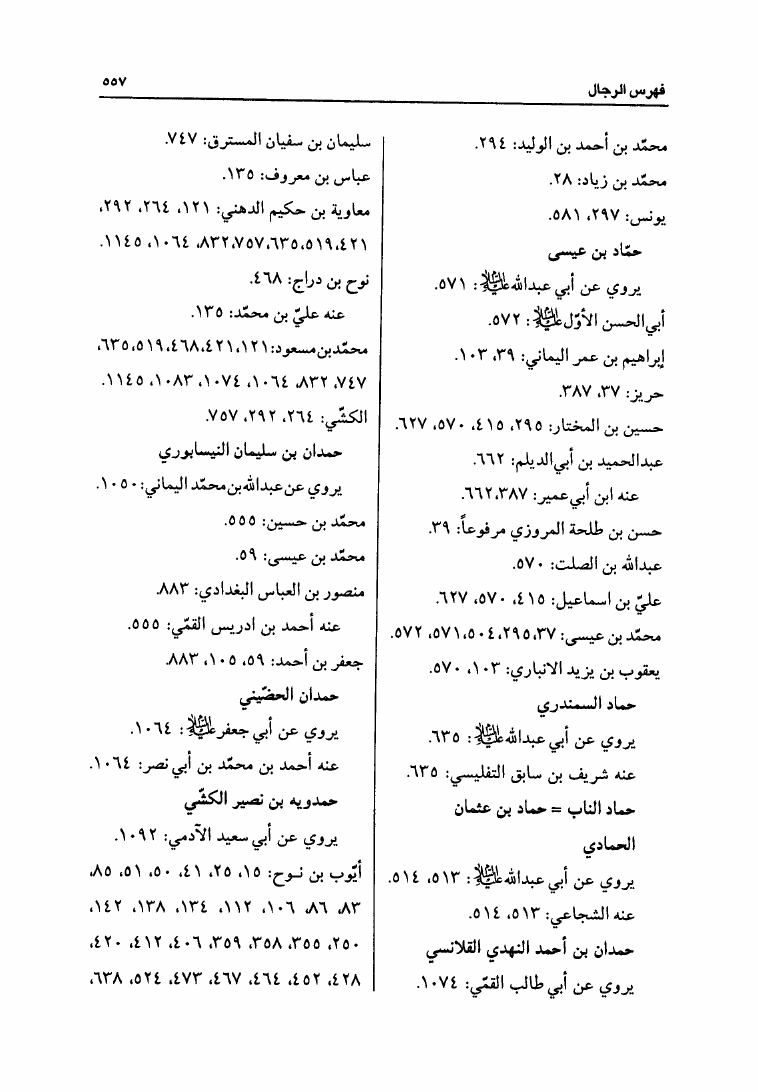 فهرس الرجال
٥٥٧
محمّد بن أحمد بن الوليد: ٢٩٤.
محمّد بن زياد: ٢٨.
يونس: ٢٩٧، ٥٨١.
حمّاد بن عيسى
يروي عن أبي عبدالله عليه السلام: ٥٧١.
أبي الحسن الأوّل عليه السلام: ٥٧٢.
إبراهيم بن عمر اليماني: ٣٩، ١٠٣.
حريز: ٣٧، ٣٨٧.
حسين بن المختار: ٢٩٥، ٤١٥، ٥٧٠، ٦٢٧.
عبدالحميد بن أبي الديلم: ٦٦٢.
عنه ابن أبي عمير: ٣٨٧، ٦٦٢.
حسن بن طلحة المروزي مرفوعاً: ٣٩.
عبدالله بن الصلت: ٥٧٠.
عليّ بن اسماعيل: ٤١٥، ٥٧٠، ٦٢٧.
محمّد بن عيسى: ٣٧، ٢٩٥، ٥٠٤، ٥٧١، ٥٧٢.
يعقوب بن يزيد الانباري: ١٠٣، ٥٧٠.
حماد السمندري
يروي عن أبي عبدالله عليه السلام: ٦٣٥.
عنه شريف بن سابق التفليسي: ٦٣٥.
حماد الناب = حماد بن عثمان
الحمادي
يروي عن أبي عبدالله عليه السلام: ٥١٣، ٥١٤.
عنه الشجاعي: ٥١٣، ٥١٤.
حمدان بن أحمد النهدي القلانسي
يروي عن أبي طالب القمّي: ١٠٧٤.
سليمان بن سفيان المسترق: ٧٤٧.
عباس بن معروف: ١٣٥.
معاوية بن حكيم الدهني: ١٢١، ٢٦٤، ٢٩٢،
٤٢١، ٥١٩، ٦٣٥، ٧٥٧، ٨٣٢، ١٠٦٤، ١١٤٥.
نوح بن دراج: ٤٦٨.
عنه عليّ بن محمّد: ١٣٥.
محمّد بن مسعود: ١٢١، ٤٢١، ٤٦٨، ٥١٩، ٦٣٥،
٧٤٧، ٨٣٢، ١٠٦٤، ١٠٧٤، ١٠٨٣، ١١٤٥.
الكشّي: ٢٦٤، ٢٩٢، ٧٥٧.
حمدان بن سليمان النيسابوري
يروي عن عبدالله بن محمّد اليماني: ١٠٥٠.
محمّد بن حسين: ٥٥٥.
محمّد بن عيسى: ٥٩.
منصور بن العباس البغدادي: ٨٨٣.
عنه أحمد بن ادريس القمّي: ٥٥٥.
جعفر بن أحمد: ٥٩، ١٠٥، ٨٨٣.
حمدان الحضّيني
يروي عن أبي جعفر عليه السلام: ١٠٦٤.
عنه أحمد بن محمّد بن أبي نصر: ١٠٦٤.
حمدويه بن نصير الكشّي
يروي عن أبي سعيد الآدمي: ١٠٩٢.
أيّوب بن نوح: ١٥، ٢٥، ٤١، ٥٠، ٥١، ٨٥،
٨٣، ٨٦، ١٠٦، ١١٢، ١٣٤، ١٣٨، ١٤٢،
٢٥٠، ٣٥٥، ٣٥٨، ٣٥٩، ٤٠٦، ٤١٢، ٤٢٠،
٤٢٨، ٤٥٢، ٤٦٤، ٤٦٧، ٤٧٣، ٥٢٤، ٦٣٨،